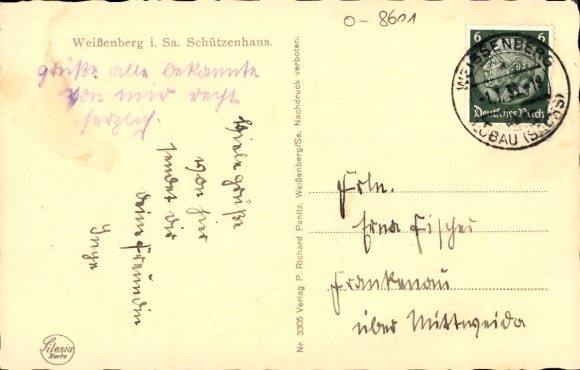 0-8601
Weißenberg i. Sa. Schützenhaus.
grüße alle bekannte
von mir recht
herzlich.
Viele grüße
von hier
sendet dir
deine Freundin
Inge
Nr. 3305 Verlag P. Richard Panitz, Weißenberg/Sa. Nachdruck verboten.
6 6
Deutsches Reich
WEISSENBERG
LÖBAU (SACHS)
Frln.
Erna Fischer
Frankenau
über Mittweida
Silesia
Karte